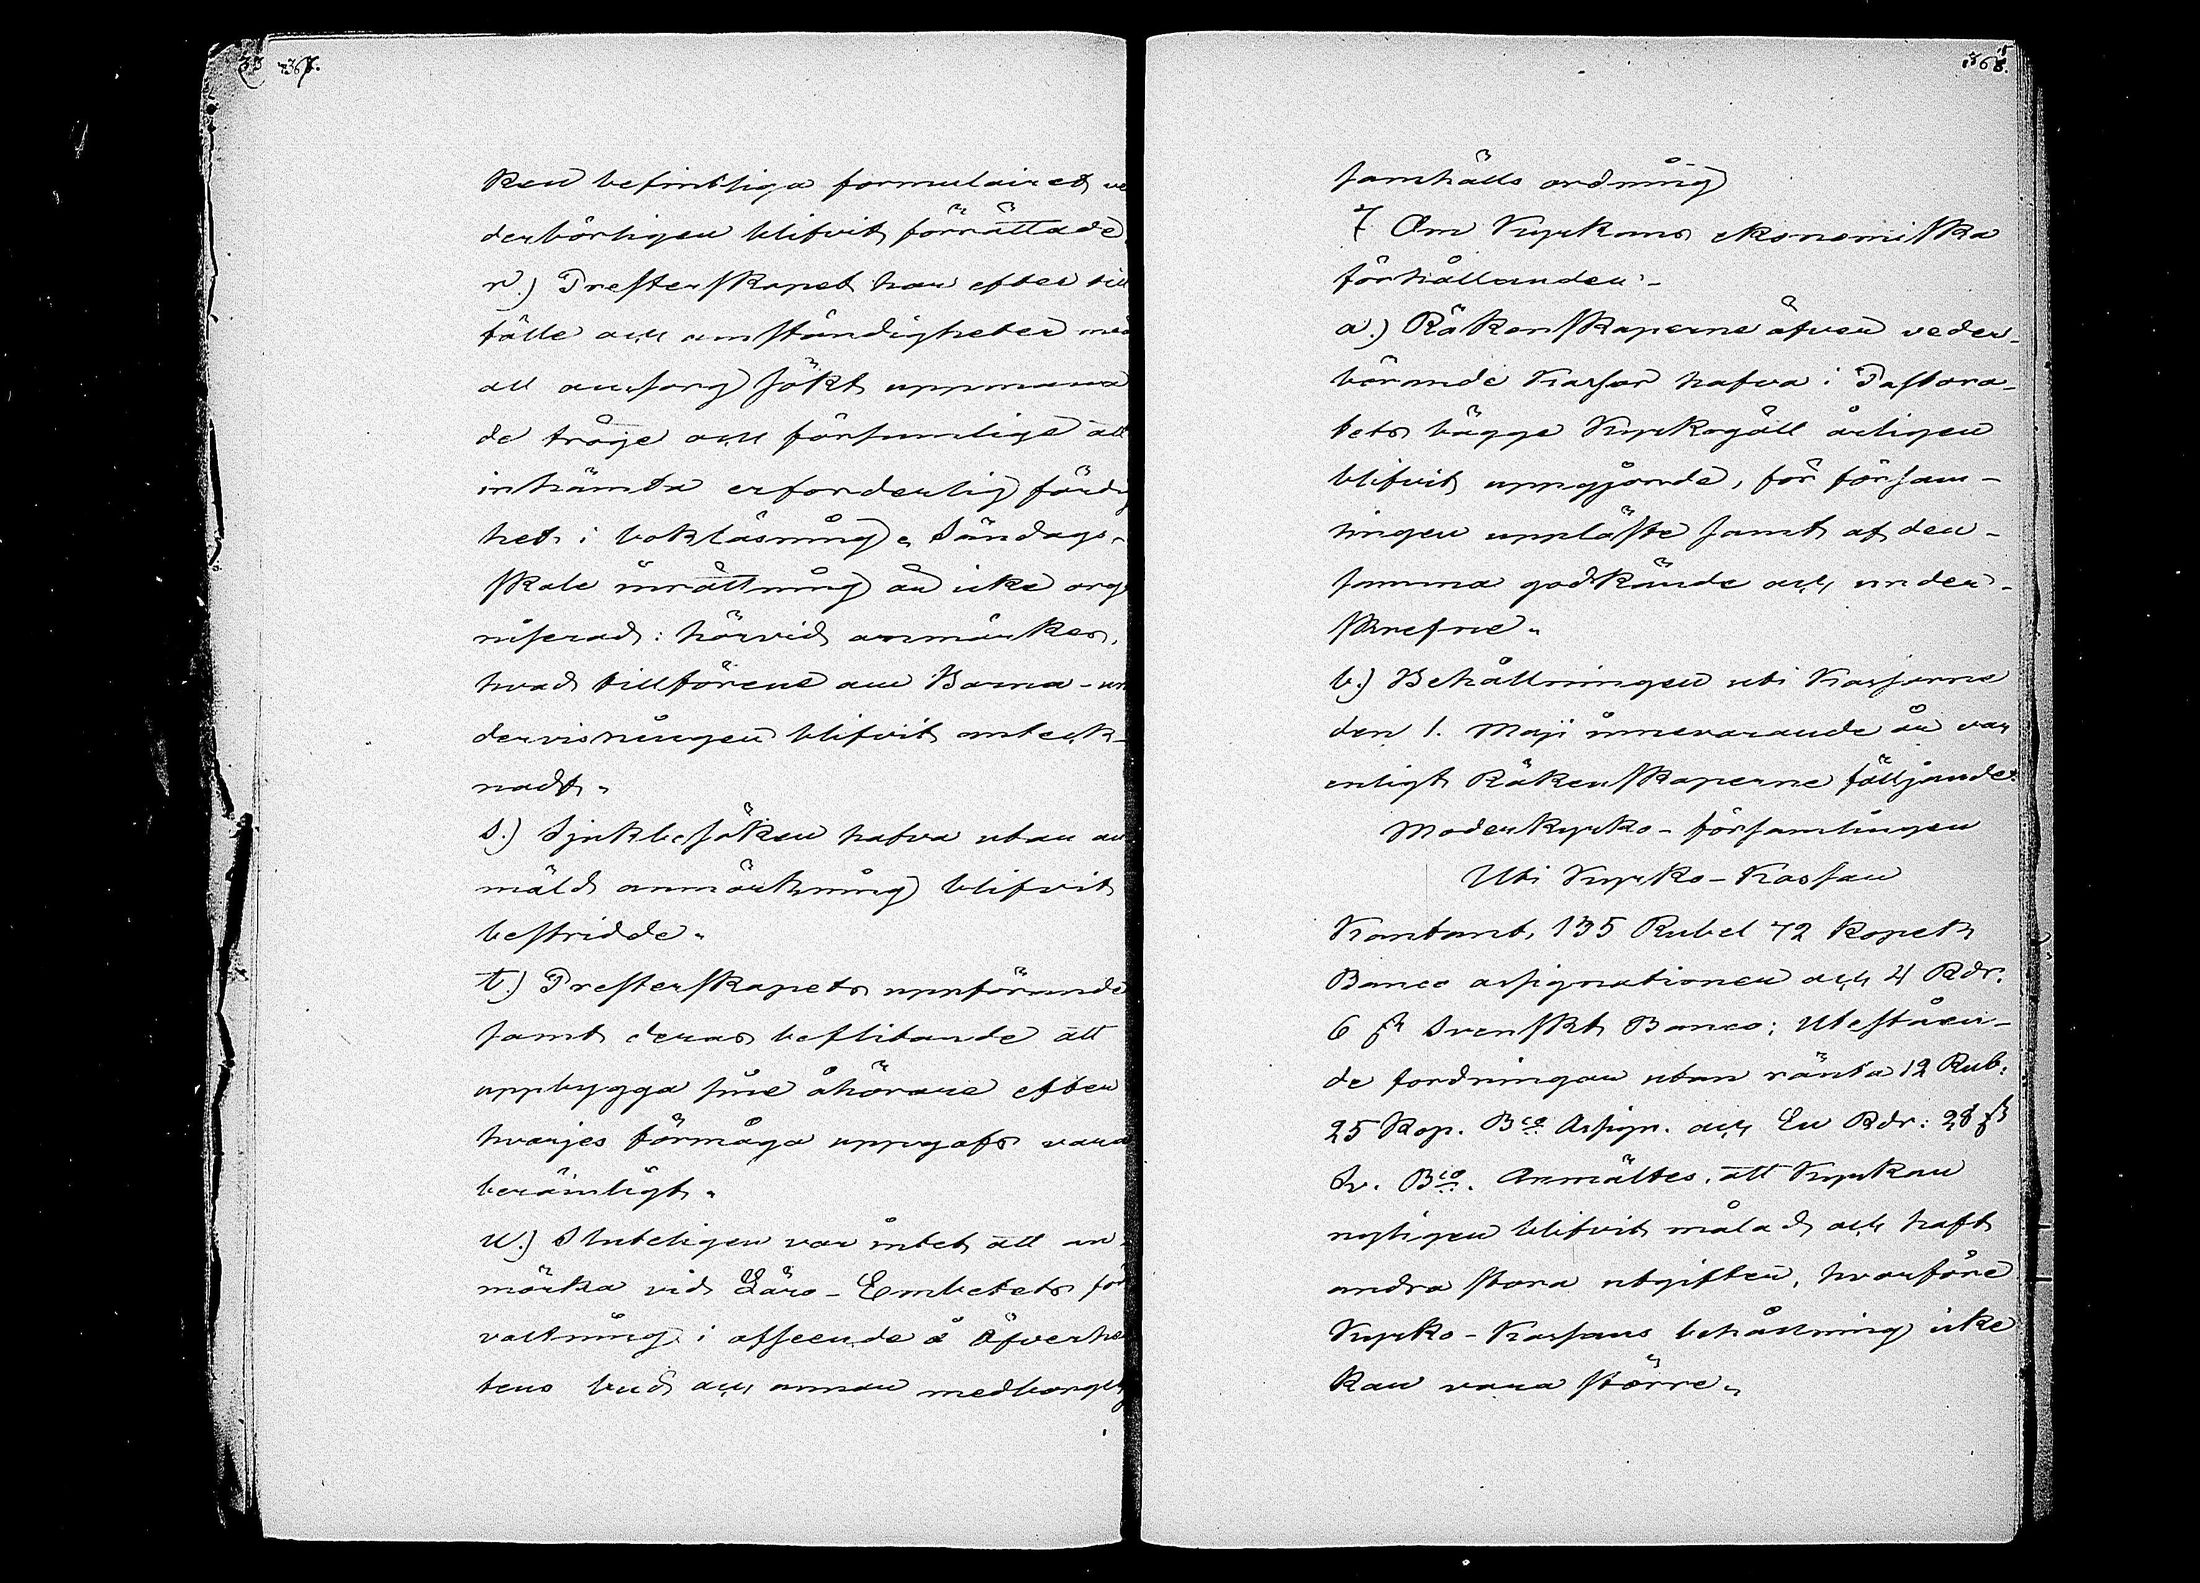 367.
ken befintliga formulairet ve
derbörligen blifvit förrättade.
r.) Presterskapet har efter till
fälle och omständigheter med
all omsorg sökt uppmana
de tröge och försumlige att
inhämta erforderlig färdig
het i bokläsning. Söndags-
skole inrättning är icke orga
niserad: härvid anmärkes,
hvad tillförene om Barna-un
dervisningen blifvit anteck-
nadt.
s.) Sjukbesöken hafva utan an
mäld anmärkning blifvit
bestridde.
t.) Presterskapets uppförande
samt deras beflitande att
uppbygga sine åhörare efter
hvarjes förmåga uppgafs vara
berömligt.
u.) Sluteligen var intet att an-
märka vid Läro-Embetets för
valtning i afseende å Öfverhe
tens bud och annan medborgerlig
368.
samhälls ordning
7 Om Kyrkans ekonomiska
förhållanden:-
a.) Räkenskaperne öfver veder-
börande Kassor hafva i Pastora-
tets bägge Kyrkogäll årligen
blifvit uppgjorde, för försam-
lingen uppläste samt af den-
samma godkände och under-
skrefne.
b.) Behållningen uti Kassorne
den 1. Maji innevarande år var
enligt Räkenskaperne följande:
Moderkyrko-församlingen
Uti Kyrko-Kassan
Kontant, 135 Rubel 72 kopek
Banco assignationer och 4 Rdr:
6 ß Svenskt Banco; Uteståen-
de fordringar utan ränta 12 Rub:
25 Kop. Bco Assign. och En Rdr: 28 ß
Sv. Bco. Anmältes, att Kyrkan
nyligen blifvit målad och haft
andra stora utgifter, hvarföre
Kyrko-Kassans behållning icke
kan vara större.